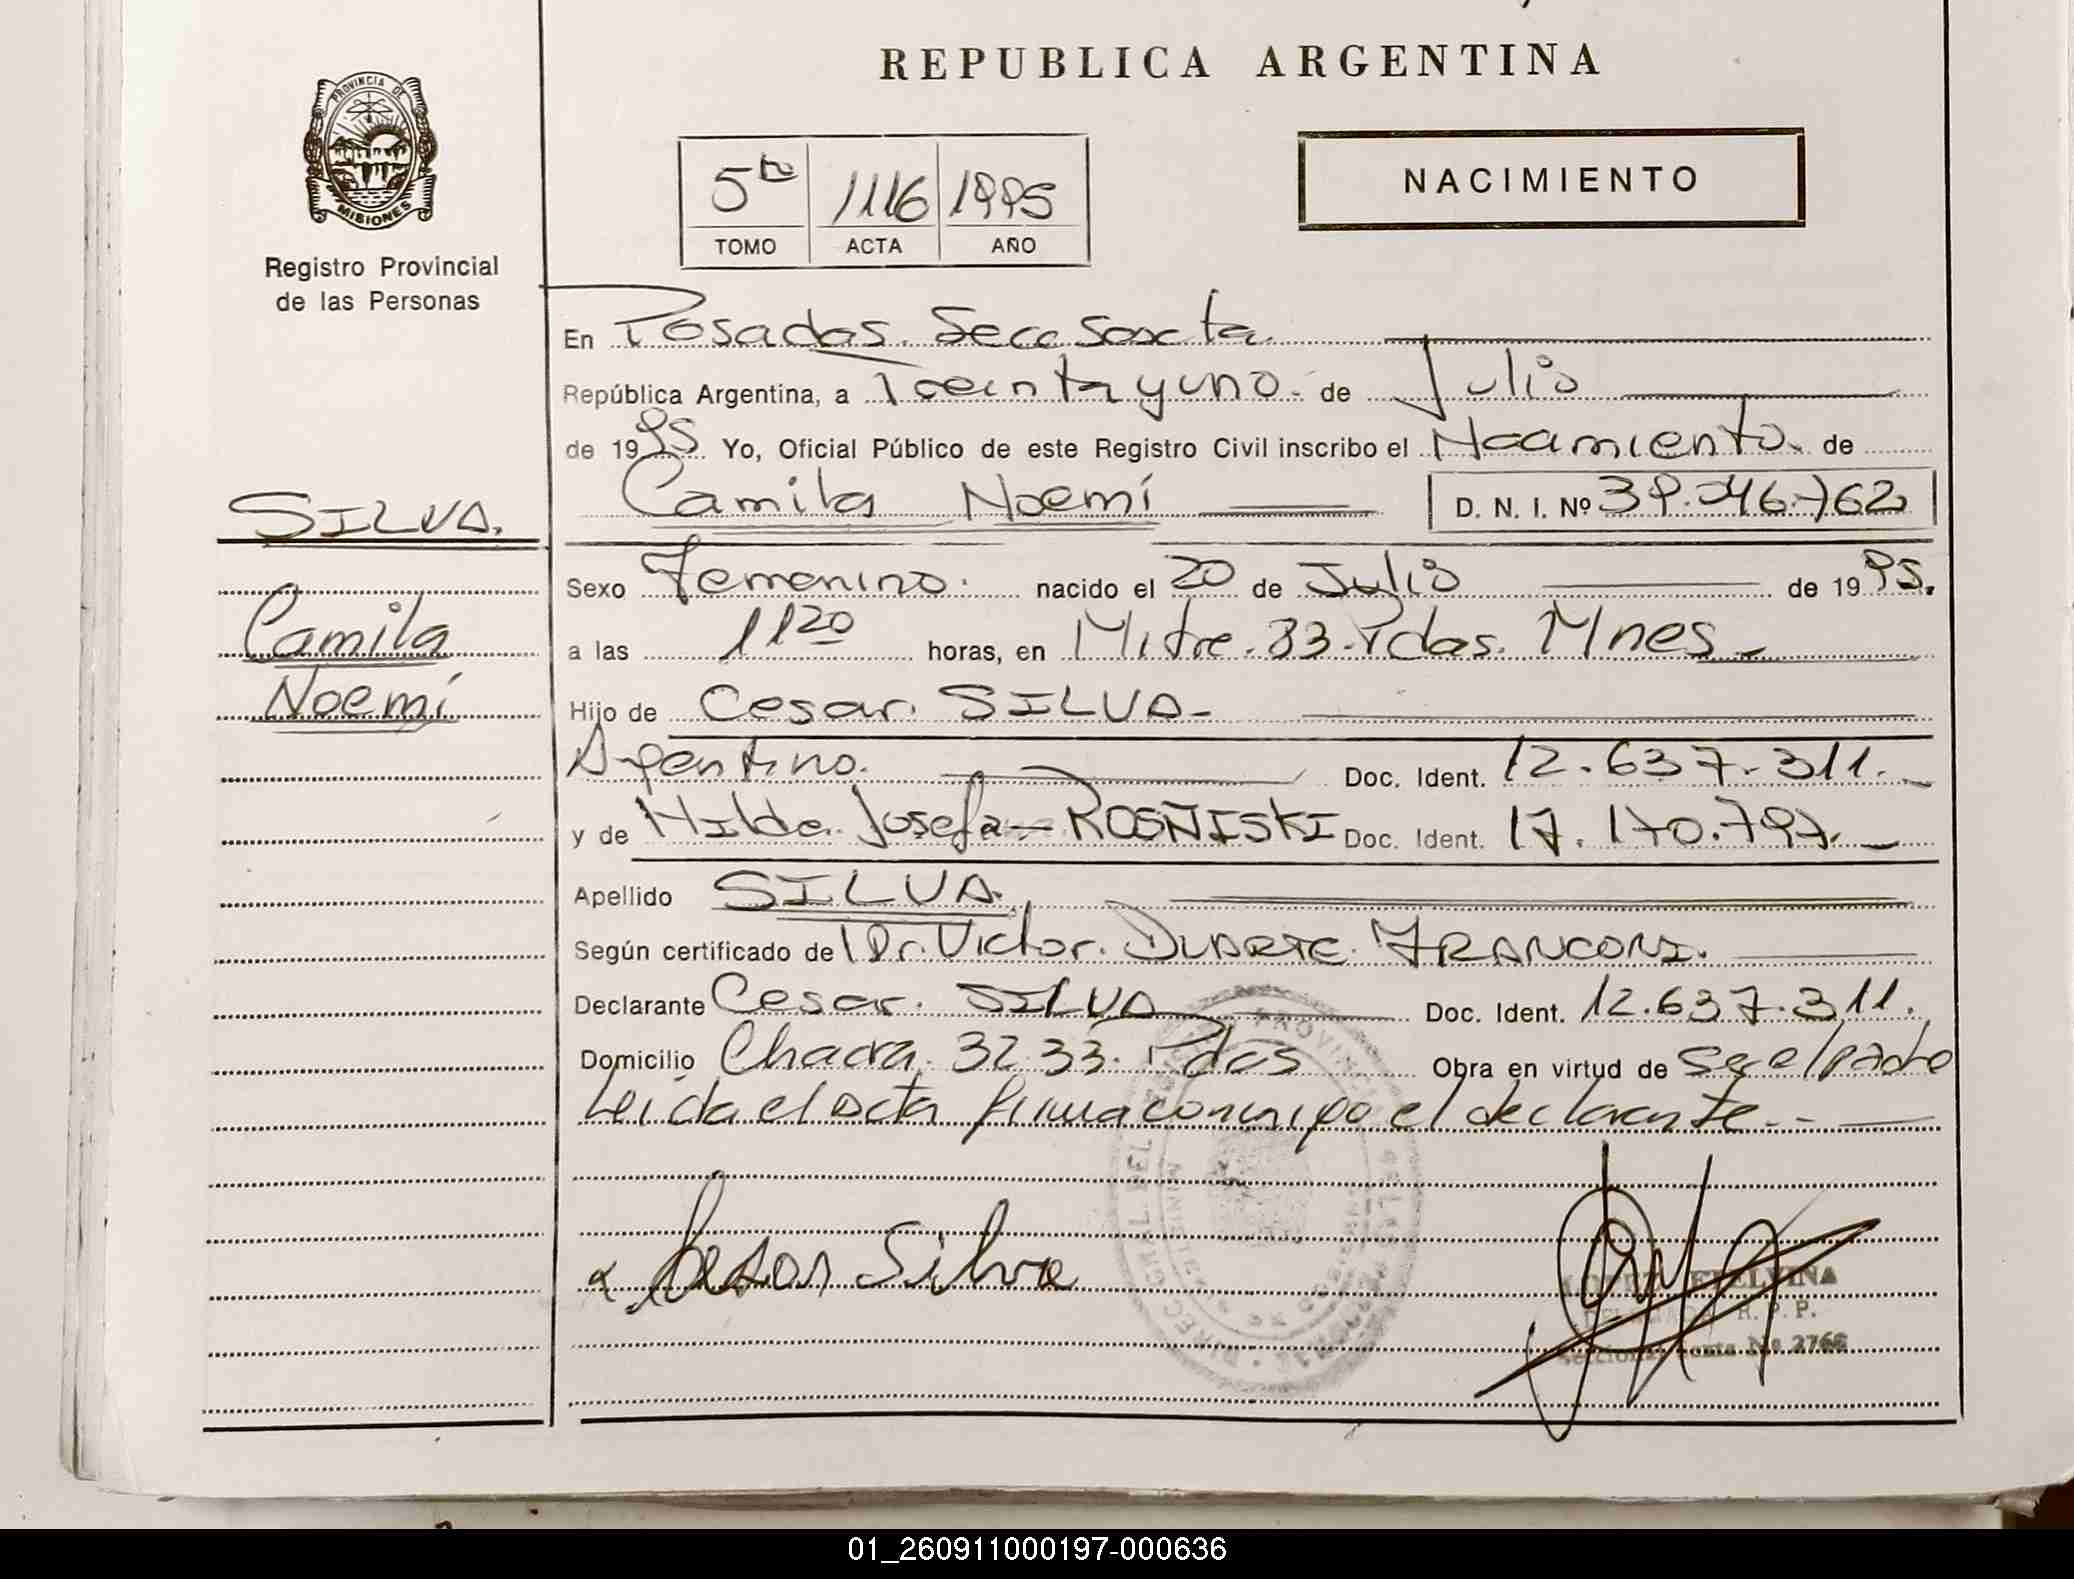 REPUBLICA ARGENTINA
PROVINCIA DE
MISIONES
Registro Provincial
de las Personas
5to 1116 1995
TOMO ACTA AÑO
NACIMIENTO
En Posadas. Secc Sexta
República Argentina, a Treinta y uno. de Julio
de 1995 Yo, Oficial Público de este Registro Civil inscribo el Nacimiento. de
Camila Noemí D. N. I. Nº
SILVA.
Camila
Noemí
Sexo Femenino. nacido el 20 de Julio de 1995.
a las 1120 horas, en Mitre. 33. Pdas. Mnes.
Hijo de Cesar. SILVA
Argentino. Doc. Ident. 12.637.311.
y de Hilda Josefa Doc. Ident. 17.170.797.
Apellido SILVA.
Según certificado de Dr. Victor. DUARTE FRANCONI.
Declarante Cesar. SILVA Doc. Ident. 12.637.311.
Domicilio Chacra. 32 33. Pdas Obra en virtud de ser el padre
Leida el acta firma conmigo el declarante.
Cesar Silva
R. P. P.
Seccional Sexta Nº 2766
01_260911000197-000636